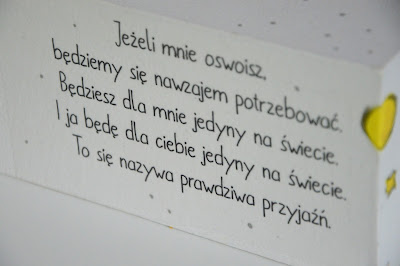 Jeżeli mnie oswoisz,
będziemy się nawzajem potrzebować.
Będziesz dla mnie jedyny na świecie.
I ja będę dla ciebie jedyny na świecie.
To się nazywa prawdziwa przyjaźń.